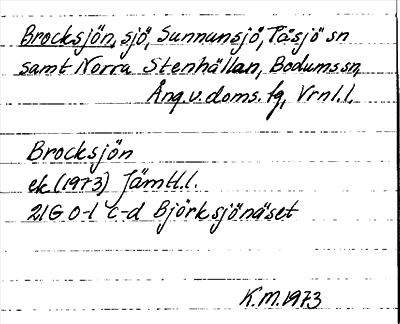 Brocksjön, sjö, Sunnansjö, Tåsjö sn
samt Norra Stenhällan, Bodums sn,
Ång.v.doms.fg, Vrnl.l.
Brocksjön
ek (1973) Jämtl.l.
21G 0-1 c-d Björksjönäset
K.M.1973